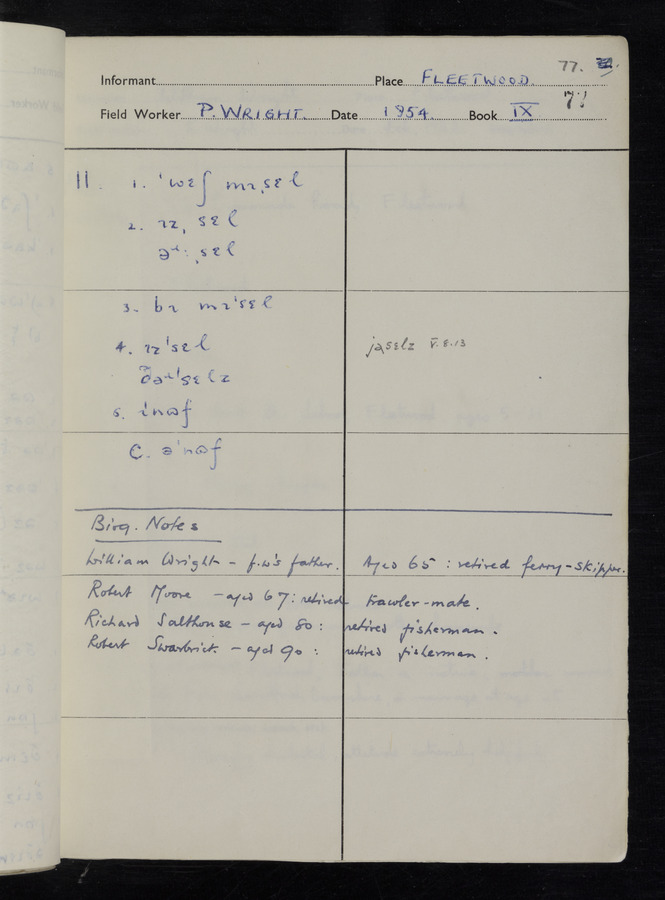 77.
Informant Place FLEETWOOD.
77
Field Worker P. WRIGHT. Date 1954. Book IX
11. 1. 'wɛʃ mɪˌsɛl
2. ɪɪˌsɛl
ˌsɛl
3. bɪ mɪ'sɛl
4. ɪɪ'sɛl
jəsɛlz V.8.13
5. ɪnɷf
C. ə'nɷf
Biog. Notes
William Wright – f.w's father. Aged 65 : retired ferry-skipper.
Robert Moore – aged 67 : retired trawler-mate.
Richard Salthouse – aged 80 : retired fisherman.
Robert Swarbrick. – aged 90 : retired fisherman.